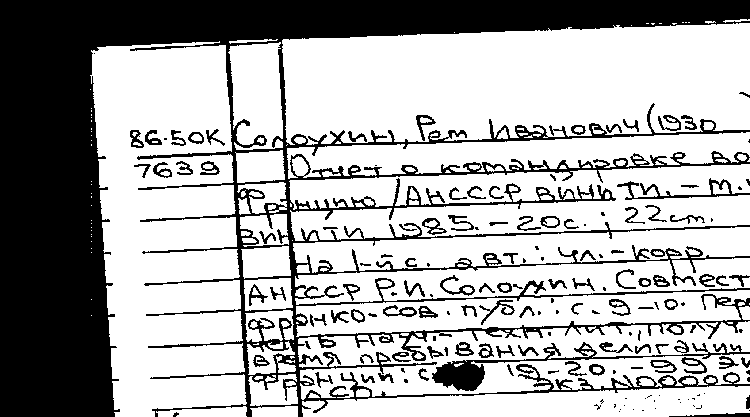 86-50К Солоухин, Рем Иванович (1930
7639 Отчет о командировке во
Францию / АНСССР, ВИНИТИ. - М.:
ВИНИТИ, 1985. - 20с.; 22см.
На 1-й с. авт.: чл.-корр.
АНСССР Р.И. Солоухин. Совмест
франко-сов. публ.: с. 9-10. Пере
чень науч.-техн. лит., получ.
время пребывания делигации
Франции: с. 19-20. - 99 эк
ЭКЗ. N00000
ДСП.